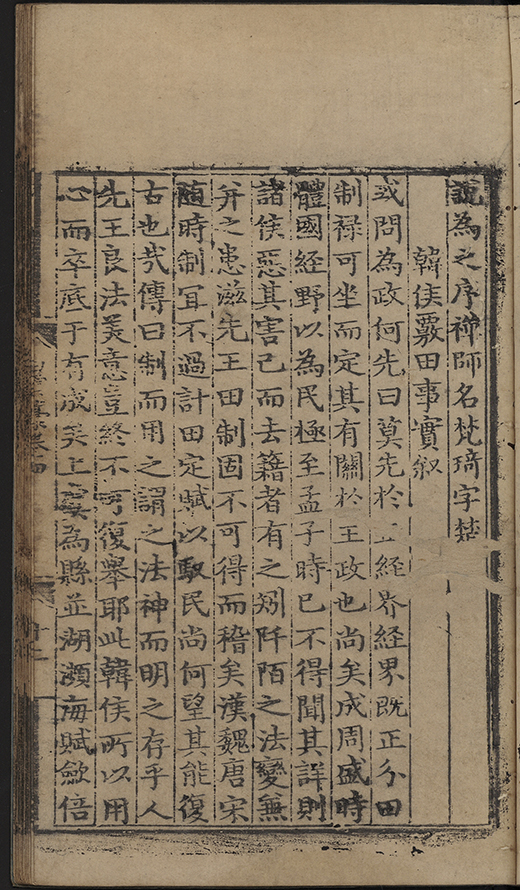 說為之序禪師名梵琦字楚
韓侯覈田事實叙
或問為政何先曰莫先於正經界經界既正分田
制祿可坐而定其有關於王政也尚矣成周盛時
體國經野以為民極至孟子時已不得聞其詳則
諸侯惡其害己而去籍者有之矧阡陌之法變兼
并之患滋先王田制固不可得而稽矣漢魏唐宋
随時制宜不過計田定賦以馭民尚何望其能復
古也㢤傳曰制而用之謂之法神而明之存乎人
先王良法美意豈終不可復舉耶此韓侯所以用
心而卒底于有成矣上虞為縣並湖瀕海賦歛倍